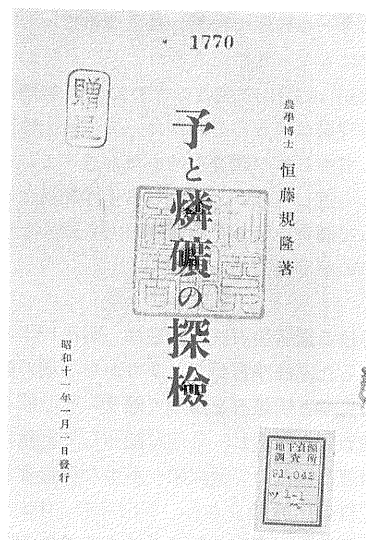 1770
贈呈
農學博士 恒藤規隆著
予と燐礦の探檢
昭和十一年一月一日發行
地下資源
調査所
ツ 1-1